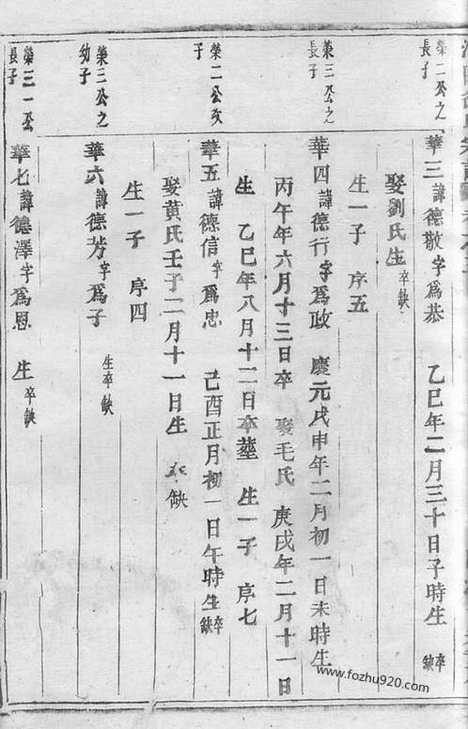 榮二公之長子
華三諱德敬字爲恭 乙巳年二月三十日子時生 卒缺
娶劉氏生卒缺
生一子 序五
榮三公之長子
華四諱德行字爲政 慶元戊申年二月初一日未時生
丙午年六月十三日卒 娶毛氏 庚戌年二月十一日
生 乙巳年八月十二日卒葬 生一子 序七
榮二公次子
華五諱德信字爲忠 己酉正月初一日午時生 卒缺
娶黃氏壬子二月十一日生 卒缺
生一子 序四
榮三公之幼子
華六諱德芳字爲子 生卒缺
榮三一公長子
華七諱德澤字爲恩 生卒缺
www.fozhu920.com